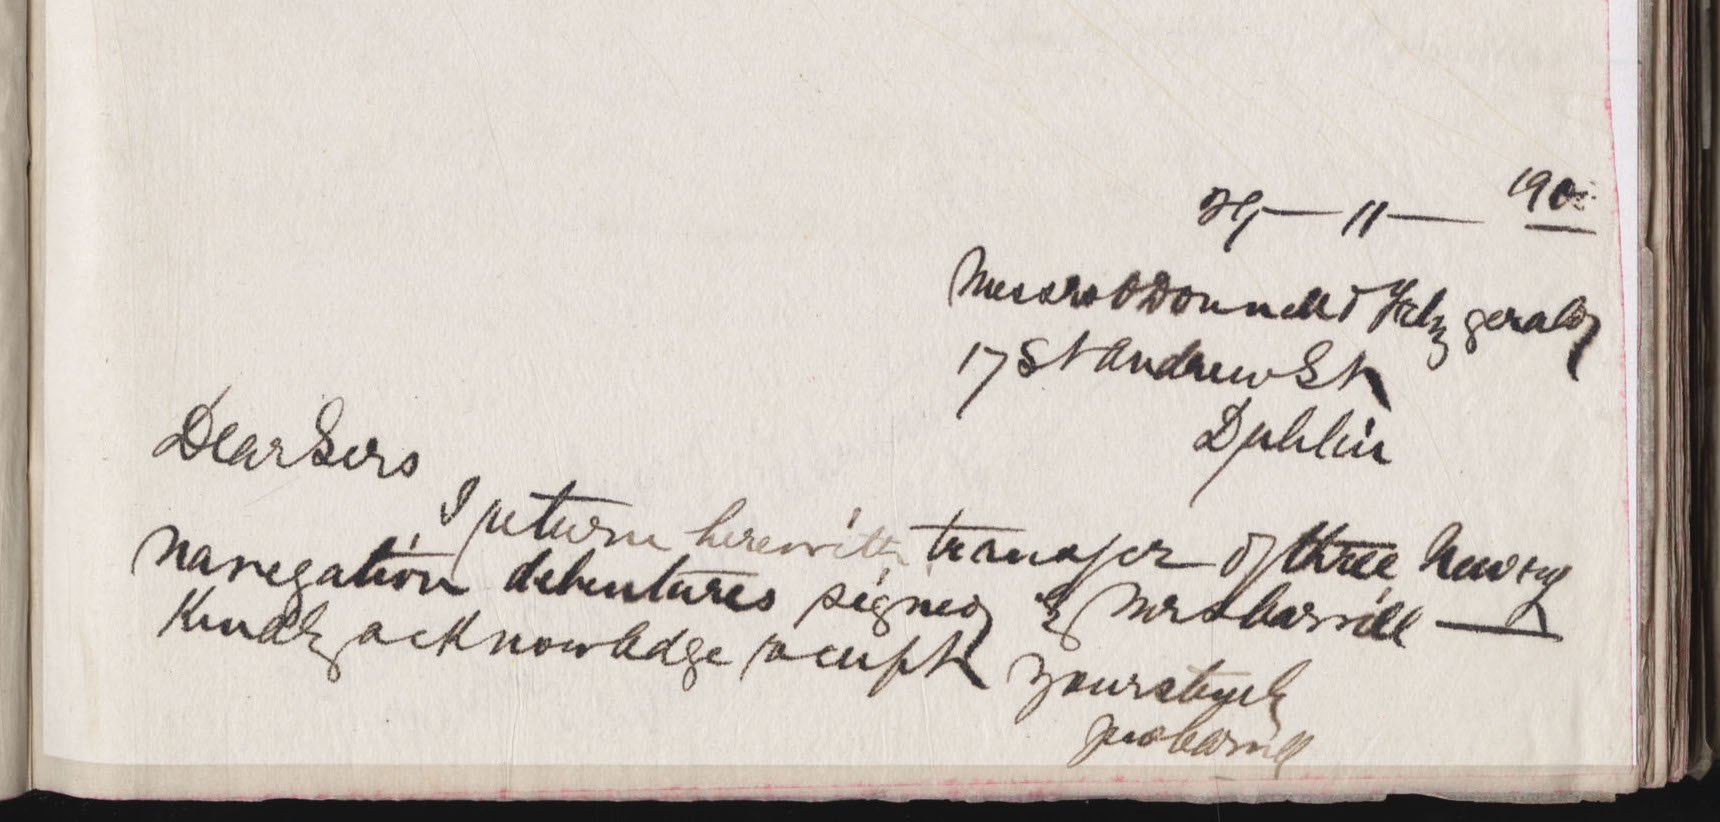 29 — 11 — 190
Messrs O'Donnell & Fitzgerald
17 St Andrew St
Dublin
Dear Sirs
I return herewith transfer of three Newry
navigation debentures signed by Mrs Carvill —
Kindly acknowledge receipt Yours truly
Carvill